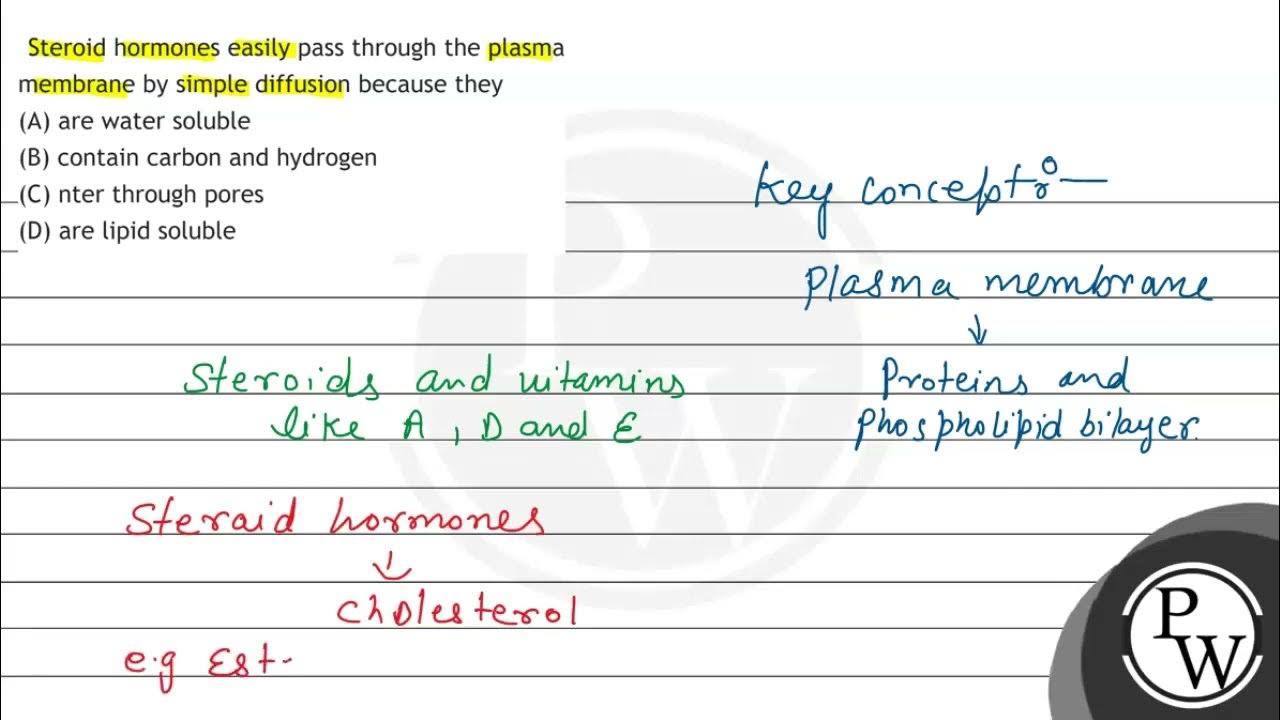 Steroid hormones easily pass through the plasma
membrane by simple diffusion because they
(A) are water soluble
(B) contain carbon and hydrogen
(C) nter through pores
(D) are lipid soluble
Key concept:—
Plasma membrane
↓
Proteins and
phospholipid bilayer.
Steroids and vitamins
like A, D and E
Steraid hormones
↓
Cholesterol
e.g Est-
P
W
P
W